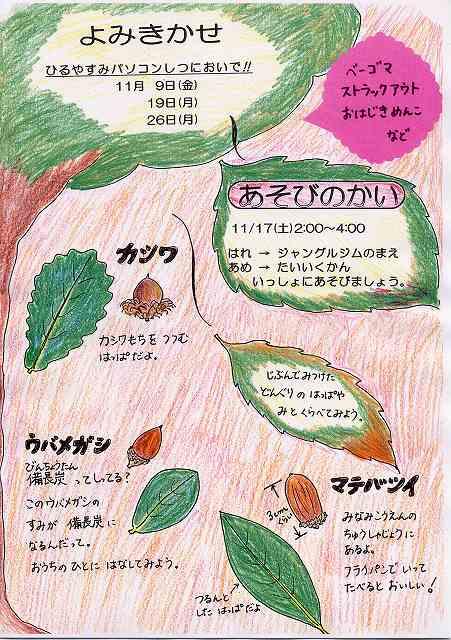 よみきかせ
ひるやすみパソコンしつにおいで!!
11月 9日(金)
19日(月)
26日(月)
ベーゴマ
ストラックアウト
おはじきめんこ
など
あそびのかい
11/17(土)2:00〜4:00
はれ → ジャングルジムのまえ
あめ → たいいくかん
いっしょにあそびましょう。
カシワ
カシワもちを つつむ
はっぱだよ。
じぶんでみつけた
どんぐりの はっぱや
みとくらべてみよう。
ウバメガシ
びんちょうたん
備長炭 ってしってる?
このウバメガシの
すみが 備長炭に
なるんだって。
おうちのひとに はなしてみよう。
3cm
くらい
マテバシイ
みなみこうえんの
ちゅうしゃじょうに
あるよ。
フライパンで いって
たべると おいしい!
つるんと
した はっぱだよ